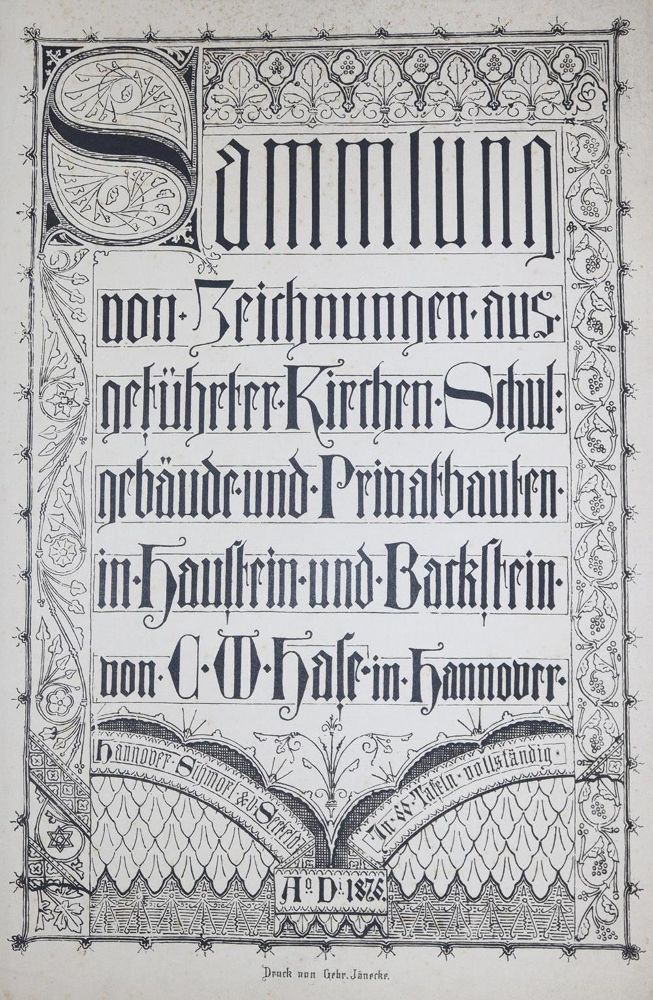 Sammlung
von · Zeichnungen · aus·
geführter · Kirchen · Schul:
gebäude · und · Privatbauten ·
in · Hauſtein · und · Backſtein ·
von · C · W · Haſe · in · Hannover ·
Hannover · Schmorl & v. Seefeld
· In · 65 · Tafeln · vollständig ·
Aº. Dⁱ. 1875.
Druck von Gebr. Jänecke.